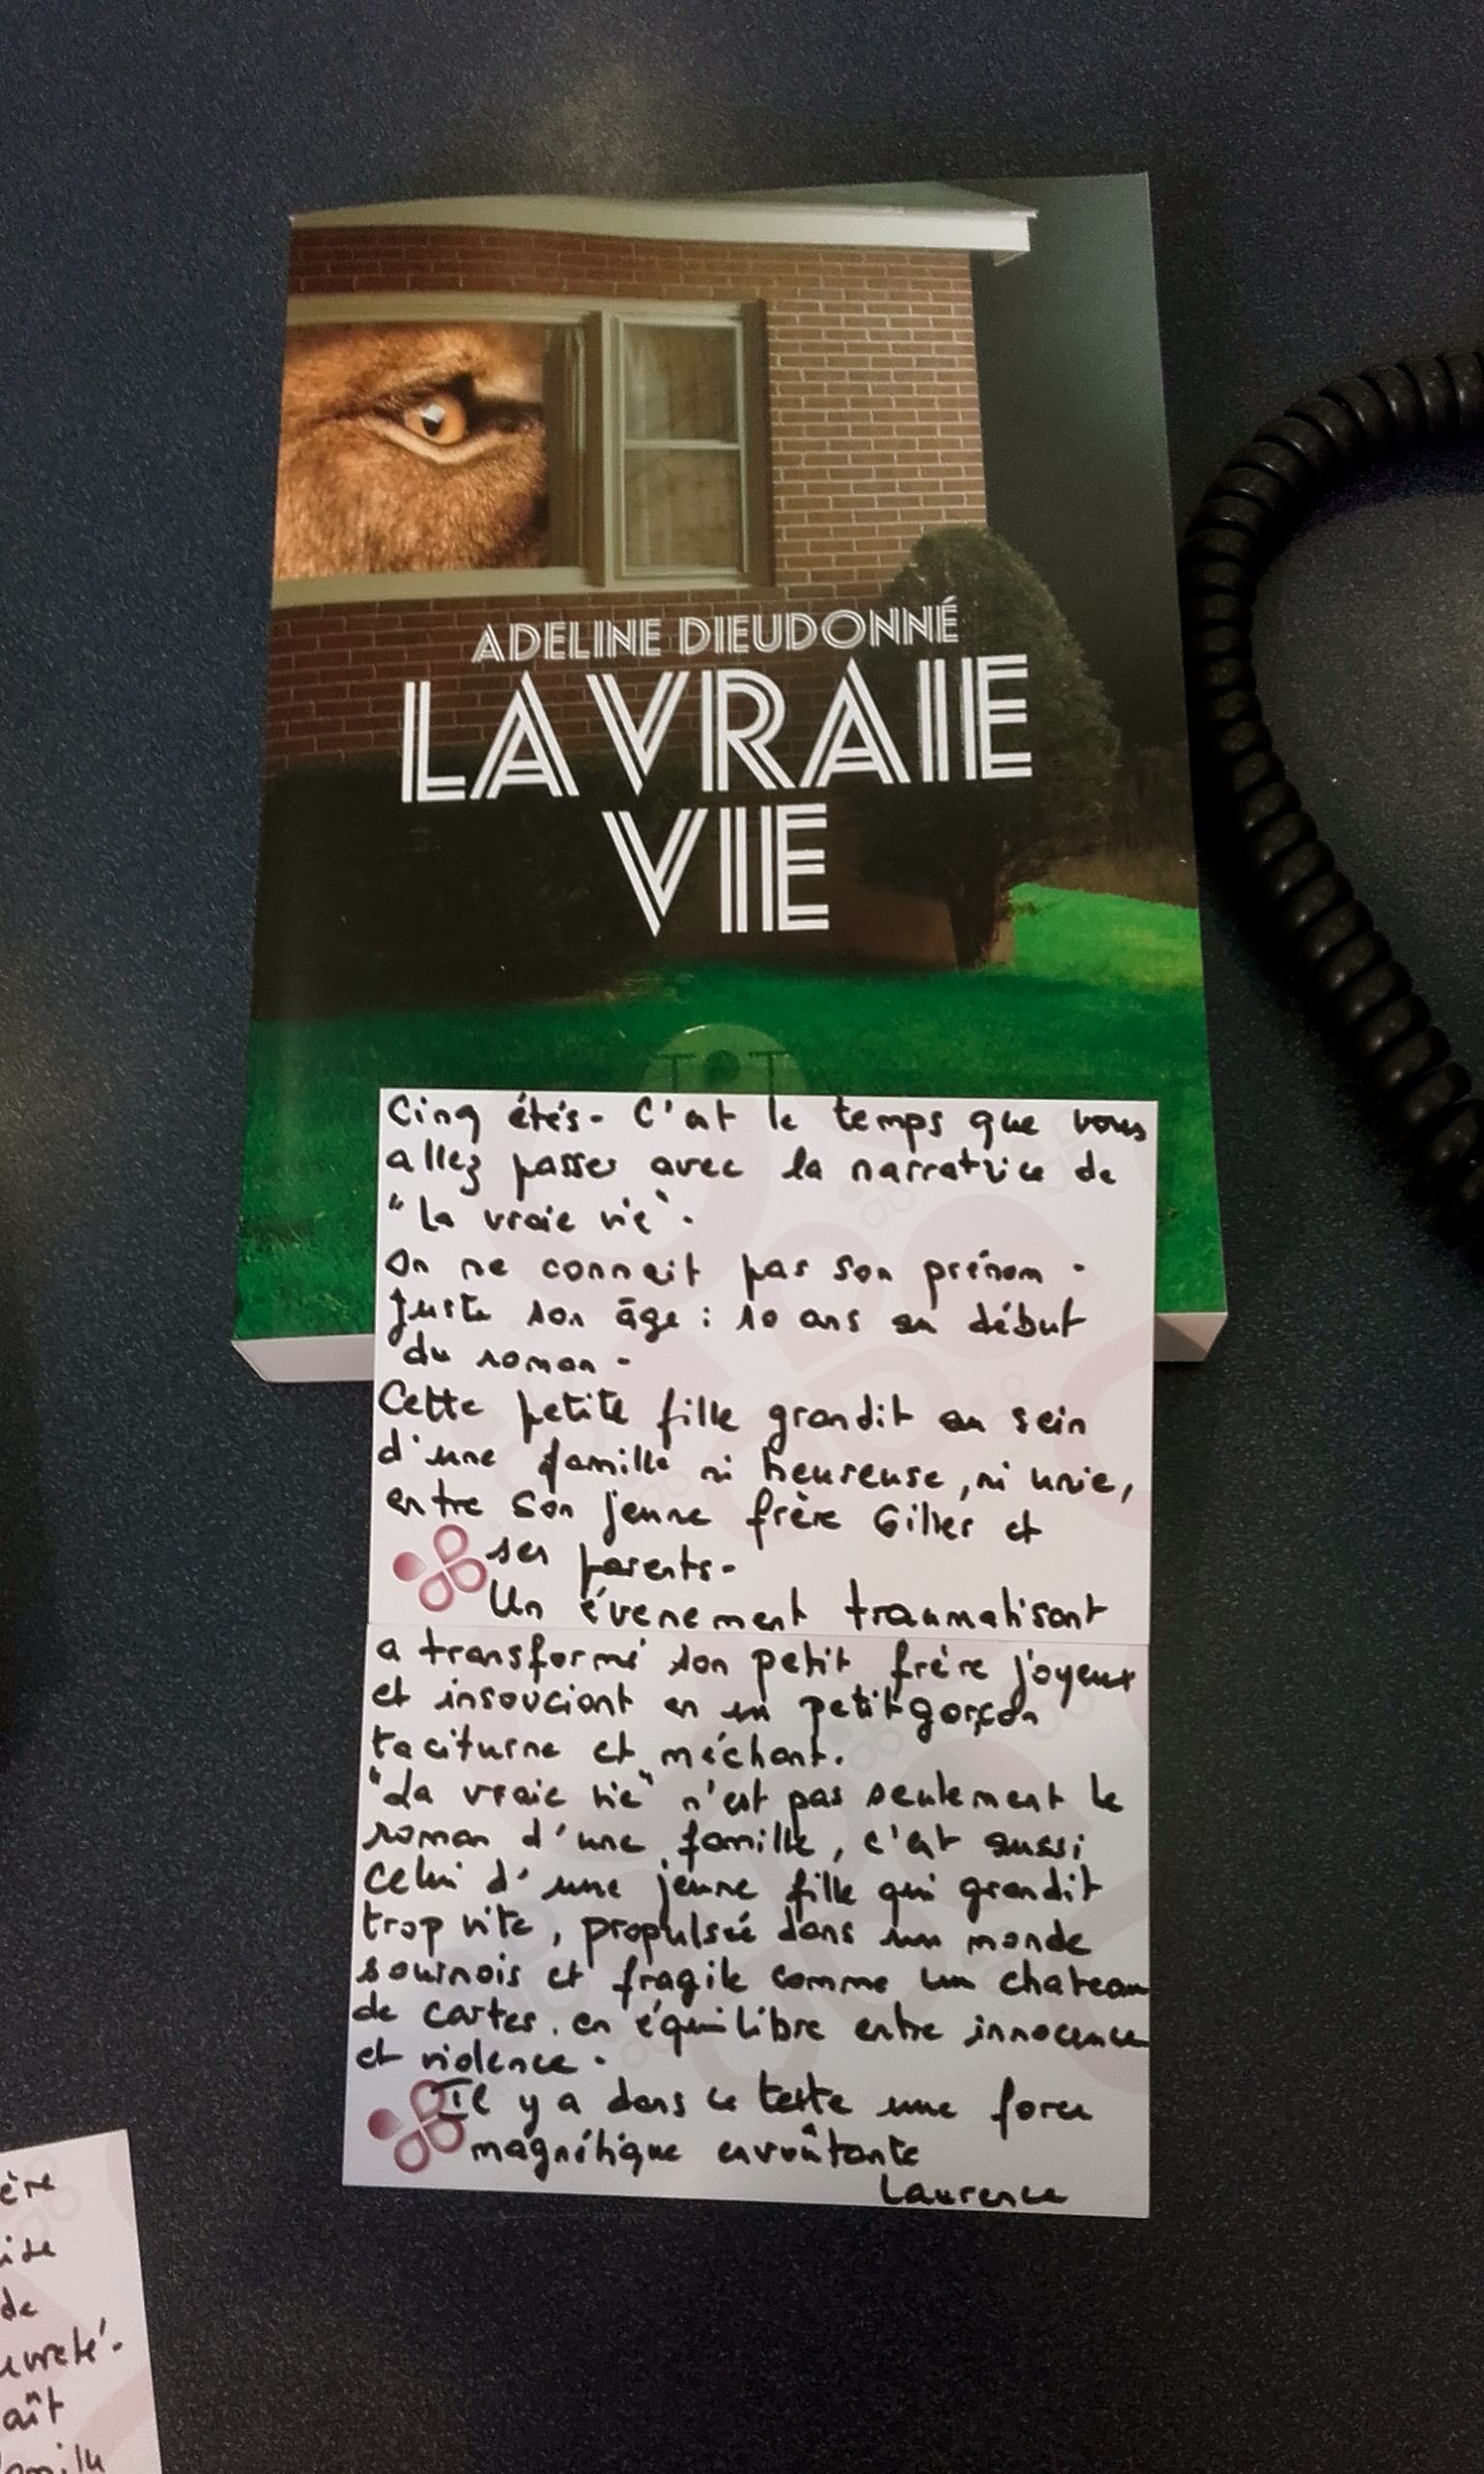 ADELINE DIEUDONNÉ
LA VRAIE
VIE
Cinq étés - C'est le temps que vous
allez passer avec la narratrice de
"La vraie vie".
On ne connait pas son prénom -
Juste son âge : 10 ans au début
du roman -
Cette petite fille grandit au sein
d'une famille ni heureuse, ni unie,
entre son jeune frère Gilles et
ses parents -
Un évenement traumatisant
a transformé son petit frère joyeux
et insouciant en un petit garçon
taciturne et méchant.
"La vraie vie" n'est pas seulement le
roman d'une famille, c'est aussi
celui d'une jeune fille qui grandit
trop vite, propulsée dans un monde
sournois et fragile comme un chateau
de cartes. en équilibre entre innocence
et violence.
Il y a dans ce texte une force
magnétique envoûtante
Laurence
ère
de
aît